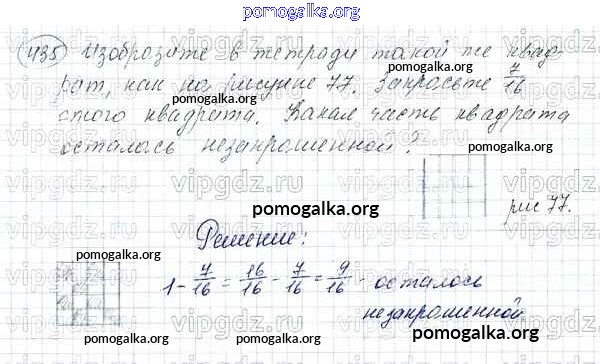 pomogalka.org
435 Изобразите в тетради такой же квад-
рат, как на рисунке 77. Закрасьте 7/16
этого квадрата. Какая часть квадрата
осталась незакрашенной?
pomogalka.org
vipgdz.ru vipgdz.ru vipgdz.ru
pomogalka.org
vipgdz.ru vipgdz.ru vipgdz.ru
pomogalka.org
рис 77.
Решение:
pomogalka.org
1 - 7/16 = 16/16 - 7/16 = 9/16 - осталось
незакрашенной
vipgdz.ru vipgdz.ru vipgdz.ru
pomogalka.org
pomogalka.org